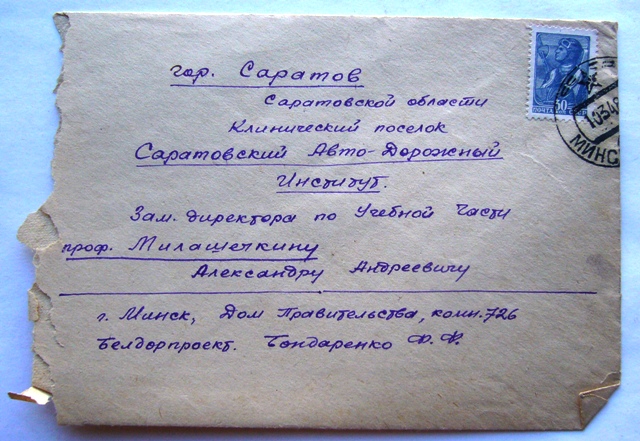 гор. Саратов
Саратовской области
Клинический поселок
Саратовский Авто-Дорожный
Институт.
Зам. директора по Учебной Части
проф. Милашечкину
Александру Андреевичу
г. Минск, Дом Правительства, комн. 726
Белдорпроект. Бондаренко Ф. Ф.
30
ПОЧТА
МИНС